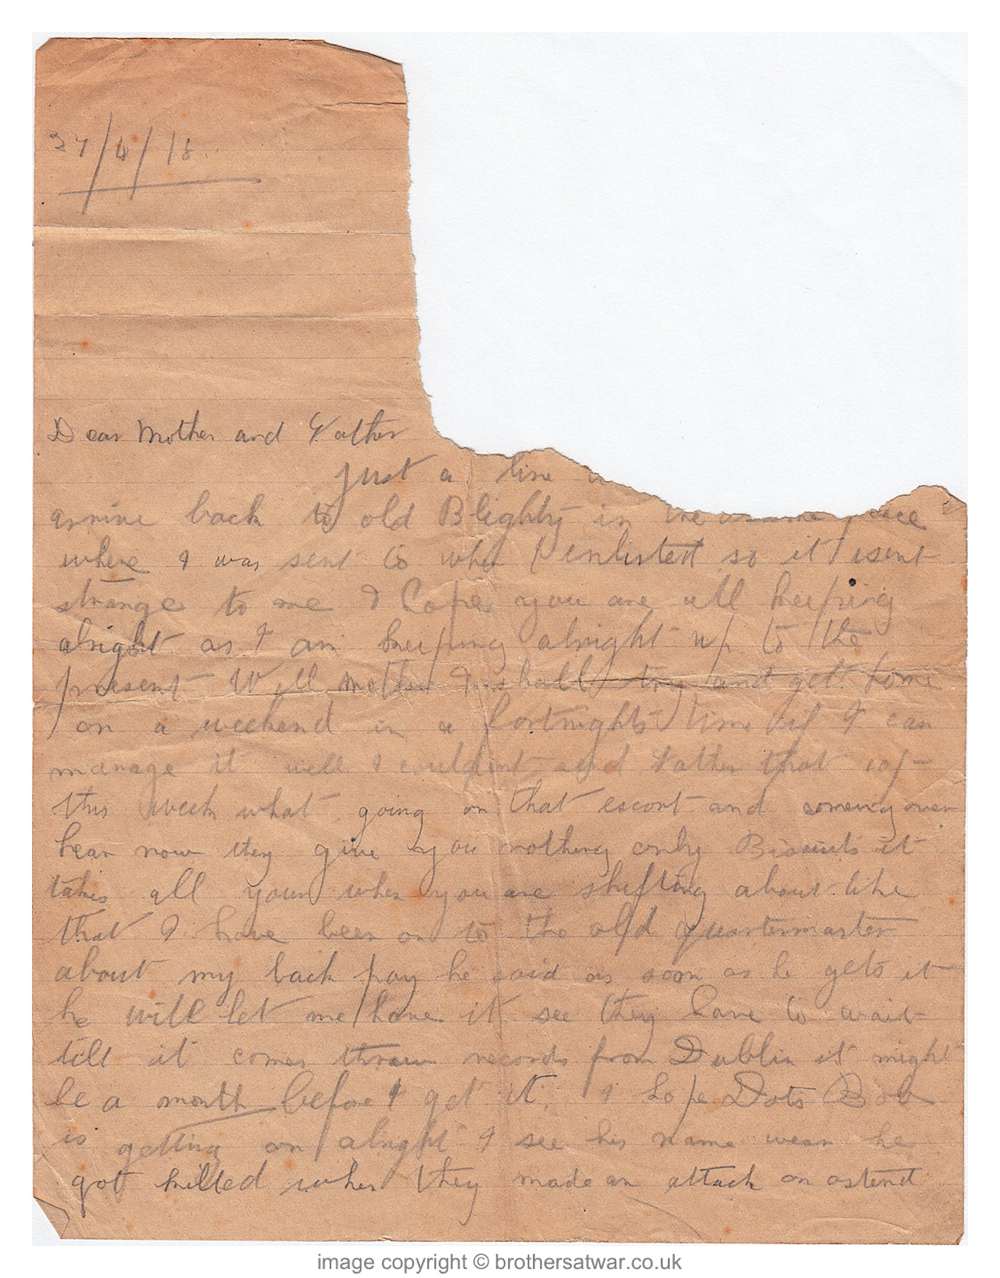 27/4/18
Dear Mother and Father
just a line
arrive back to old Blighty in the same place
where I was sent to when I enlisted so it isent
strange to me I Hope you are all keeping
alright as I am keeping alright up to the
present Well mother I shall try and get home
on a weekend in a fortnights time if I can
manage it well I couldent send Father that
this week what going on that escort and coming over
hear now they give you nothing only Biscuits it
takes all yours when you are shifting about like
that I have been on to the old quartermaster
about my back pay he said as soon as he gets it
he will let me have it see they have to wait
till it comes threw records from Dublin it might
be a month before I get it. I hope Dots Bob
is getting on alright I see his name wear he
got killed when they made an attack on ostend
image copyright © brothersatwar.co.uk